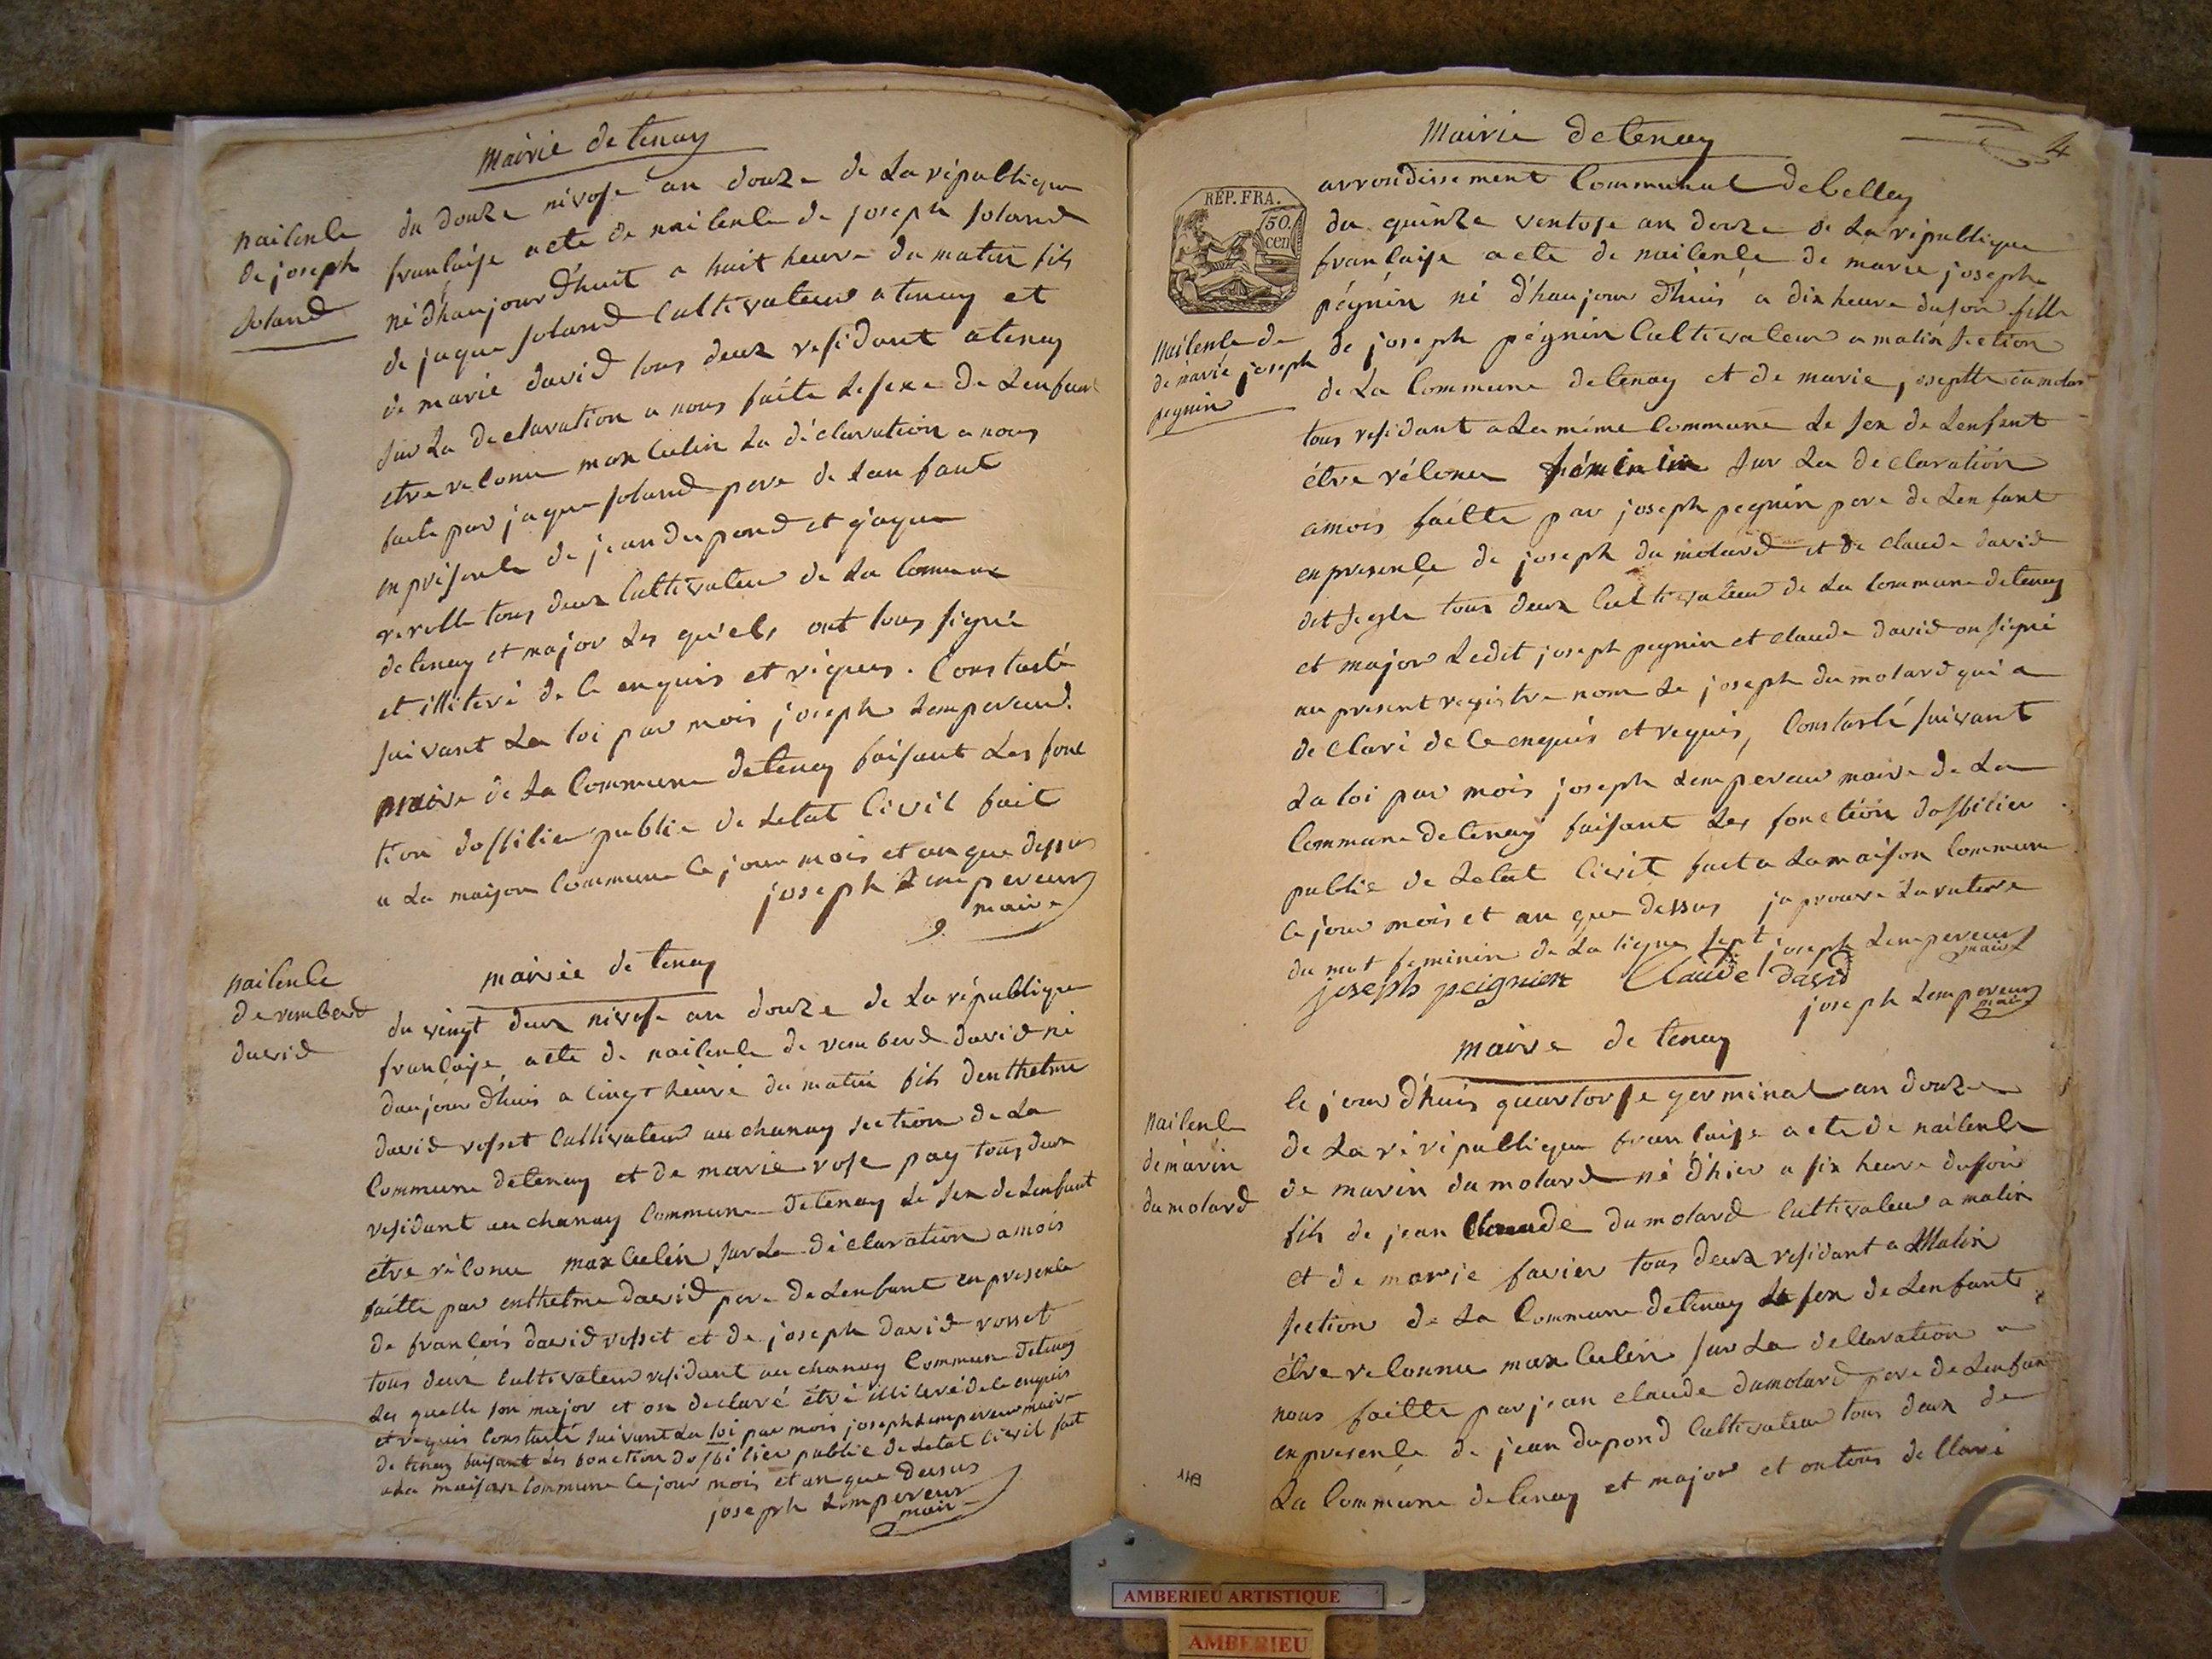 Mairie de tenay
naisence
de joseph
Joland
du douze nivose an douze de La république
francaise acte de naisence de joseph joland
né d'haujourd'huit a huit heure du matin fils
de jaque joland Cultivateur a tenay et
de marie david tous deux residant a tenay
sur La declaration a nous faite Le sexe de Lenfant
etre reconu masculin La déclaration a nous
faite par jaque joland pere de Lanfant
en présence de jean dupond et jaque
tous deux Cultivateur de La Comune
de tenay et major Les quiels ont tous signé
et illiteré de ce enquis et riquis. Constasté
suivant La loi par mois joseph Lempereur
maire de La Commune de tenay faisant Les fonc
tion dossicier public de Letat Civil fait
a La maison Commune Ce jour mois et an que dessus
joseph Lempereur
maire
naisence
de rembert
david
mairie de tenay
du vingt deux nivose an douze de La république
francaise acte de naisence de rembert david né
daujour d'huis a cinq heure du matin fils denthelme
david rosset Cultivateur au chanay section de La
Commune de tenay et de marie rose pay tous deux
residant au chanay Commune de tenay Le sex de Lenfant
etre réconu masculin sur La déclaration a mois
faitte par enthelme david pere de Lenfant en presence
de francois david rosset et de joseph david rosset
tous deux Cultivateur residant au chanay Commune de tenay
Les quelle son major et on declaré étre illiteré de ce enquis
et requis Constasté suivant La loi par mois joseph Lempereur maire
de tenay faisant Les fonction dossicier public de Letat Civil fait
a La maison Commune Ce jour mois et an que dessus
joseph Lempereur
maire
Mairie de tenay
4
RÉP. FRA.
50.
cen
arrondissement Communal de belley
naisence de
de marie joseph
pegnin
du quinze ventose an douze de La république
francaise acte de naisence de marie josephe
pégnin né d'haujour d'huis a dix heure du soir fille
de joseph pégnin Cultivateur a malix section
de La Commune de tenay et de marie josephte dumolar
tous residant a La même Commune Le sex de Lenfent
étre réconu féminin sur La declaration
a mois faitte par joseph pegnin pere de Lenfant
en presence de joseph du molard et de claude david
dit tous deux Cultivateur de La Commune de tenay
et major Ledit joseph pegnin et claude david on signé
au present registre nom Le joseph du molard qui a
declaré de Ce enquis et requis, Constasté suivant
La loi par mois joseph Lempereur maire de La
Commune de tenay faisant Les fonction dossicier
public de Letat Civil fait a La maison Commune
Ce jour mois et an que dessus japrouve La rature
du mot feminin de La ligne sept joseph Lempereur
maire
joseph peignien Claude david
joseph Lempereur
maire
maire de tenay
naisence
de marin
du molard
Ce jour d'huis quartorse germinal an douze
de La rérépublique francaise acte de naisence
de marin du molard né d'hier a six heure du soir
fils de jean Claude du molard Cultivateur a malix
et de marie favier tous deux residant a Malix
section de La Commune de tenay Le sex de Lenfant
étre reconnu masculin sur La declaration a
nous faitte par jean claude dumolard pere de Lenfan
en presence de jean dupond Cultivateur tous deux de
La Commune de tenay et major et on tous declaré
AMBERIEU ARTISTIQUE
AMBERIEU